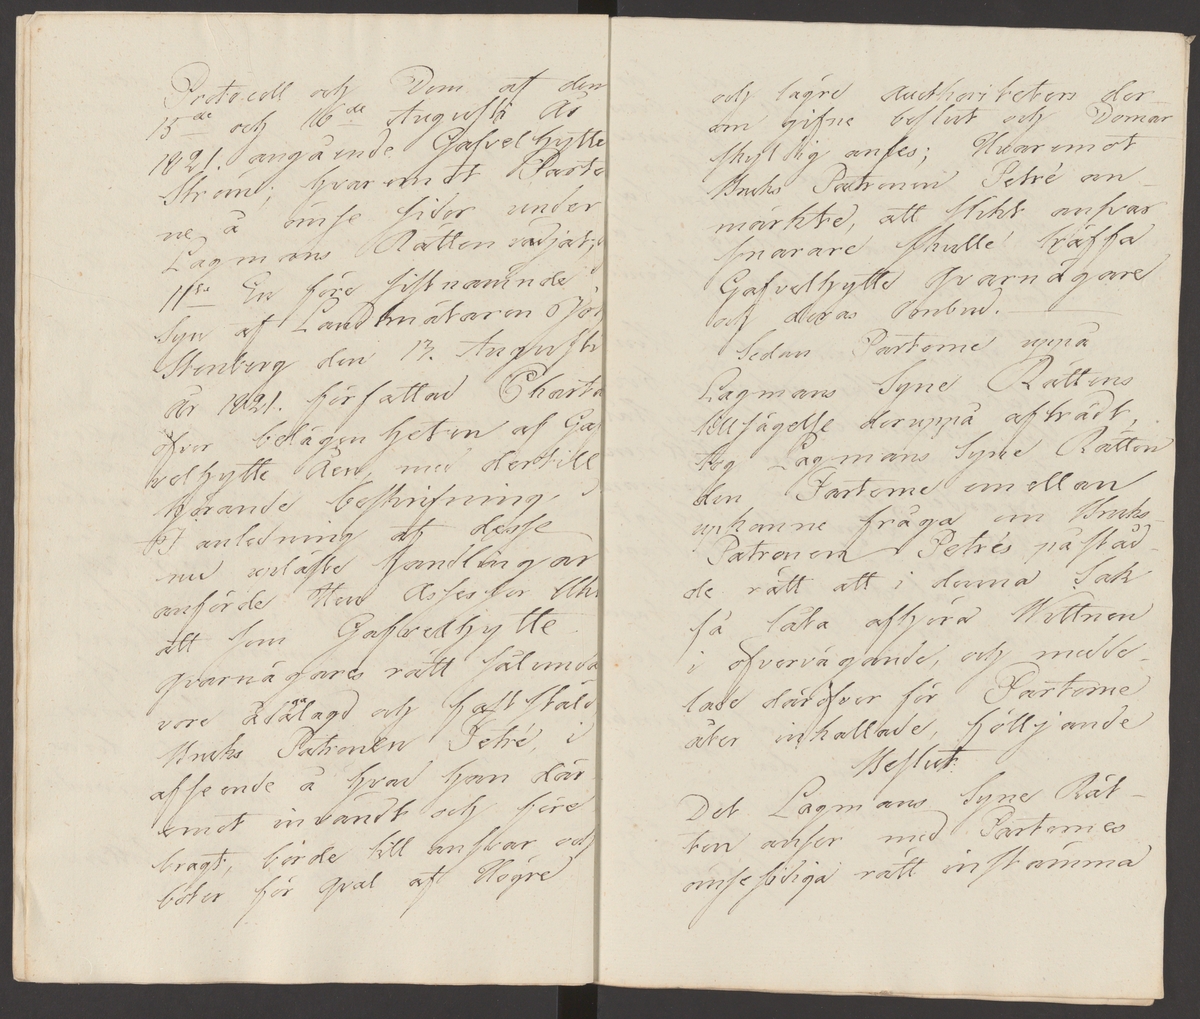 Protocoll och Dom af den
15de och 16de Augusti År
1821. angående Gafvelhytte
Ström; hvaremot Parte
ne å ömse sidor under
Lagmans Rätten vädjat,
11te En före sistnämnde
Syn af Landtmätaren
Stenberg den 13. Augusti
år 1821. författad Charta
öfver belägenheten af Gaf
velhytte Åen, med dertill
hörande beskrifning.
I anledning af desse
nu upläste handlingar
anförde Herr Assessor
att som Gafvelhytte
qvarnägares rätt sålunda
vore ådagalagd och fastställd
Bruks Patronen Petré, i
afseende å hvad han där
emot invändt och före
bragt, borde till ansvar och
böter för qval af Högre
och lägre Auctoriteters der
om gifne beslut och Domar
skyldig anses; Hvaremot
Bruks Patronen Petré an-
märkte, att slikt ansvar
snarare skulle träffa
Gafvelhytte Qvarnägare
och deras Ombud.
Sedan Parterne uppå
Lagmans Syne Rättens
tillsägelse deruppå afträdt,
tog Lagmans Syne Rätten
den Parterne emellan
upkomne fråga om Bruks
Patronen Petrés påståd-
de rätt att i denna Sak
få låta afhöra Wittnen
i öfvervägande, och medde-
lade däröfver för Parterne
åter inkallade, följande
Beslut:
Det Lagmans Syne Rät-
ten anser med Parternes
ömsesidiga rätt instämma